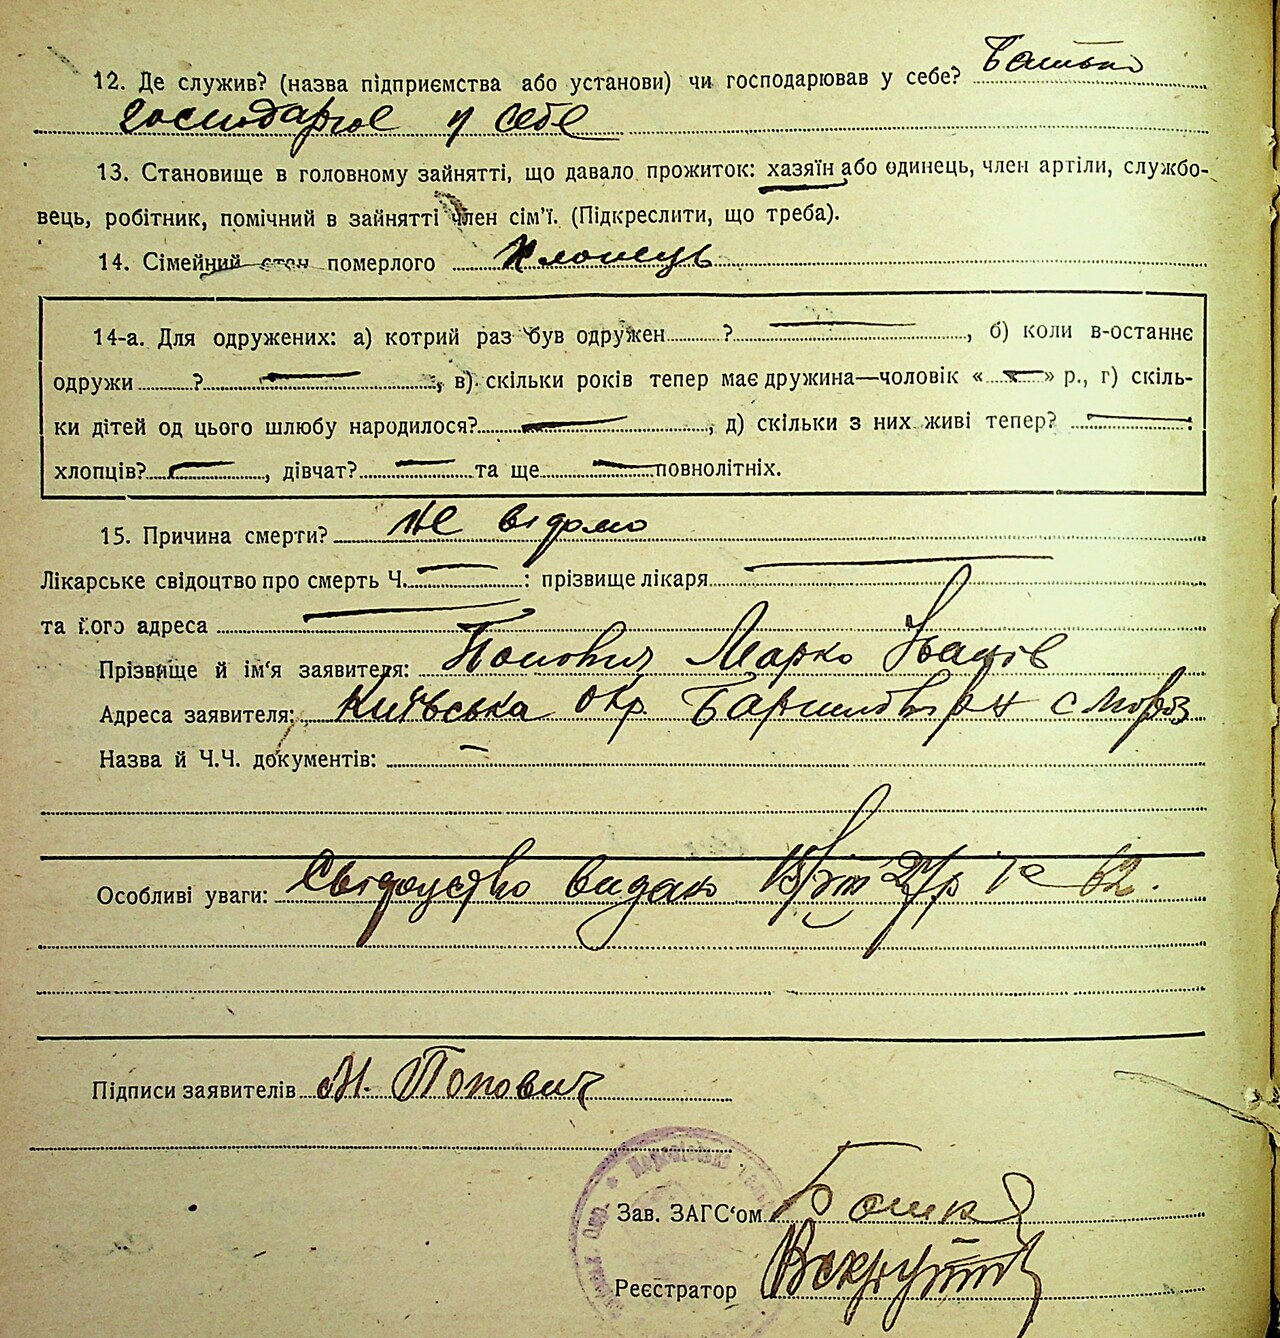 12. Де служив? (назва підприємства або установи) чи господарював у себе? Батько
господарює у себе
13. Становище в головному зайнятті, що давало прожиток: хазяїн або одинець, член артіли, службо-
вець, робітник, помічний в зайнятті член сім'ї. (Підкреслити, що треба).
14. Сімейний стан померлого Хлопець
14-а. Для одружених: а) котрий раз був одружен ? , б) коли в-останнє
одружи ? , в) скільки років тепер має дружина—чоловік « » р., г) скіль-
ки дітей од цього шлюбу народилося? , д) скільки з них живі тепер? :
хлопців? , дівчат? та ще повнолітніх.
15. Причина смерти? Не відомо
Лікарське свідоцтво про смерть Ч. : прізвище лікаря
та його адреса
Прізвище й ім'я заявителя: Попович Марко Іванів
Адреса заявителя: Київська окр. с
Назва й Ч.Ч. документів: —
Особливі уваги: Свідоцтво видано 62.
Підписи заявителів М. Попович
Зав. ЗАГС'ом
Реєстратор